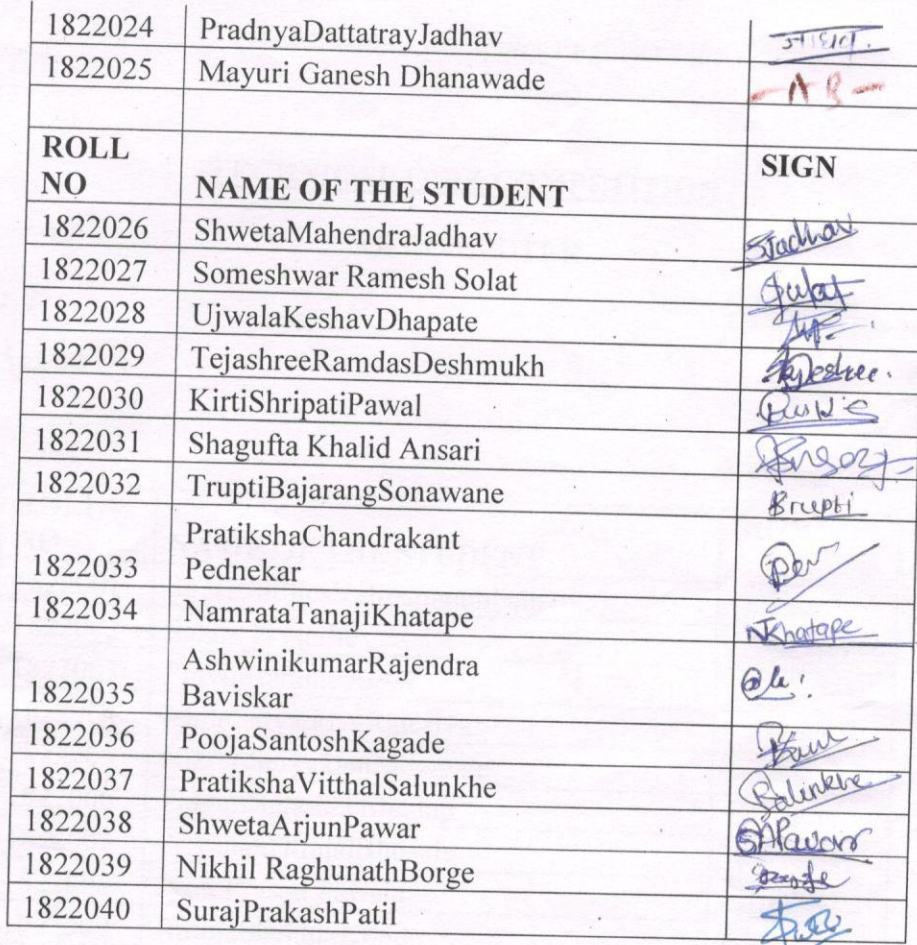 1822024 PradnyaDattatrayJadhav
1822025 Mayuri Ganesh Dhanawade -AB-
ROLL NO NAME OF THE STUDENT SIGN
1822026 ShwetaMahendraJadhav SJadhav
1822027 Someshwar Ramesh Solat
1822028 UjwalaKeshavDhapate
1822029 TejashreeRamdasDeshmukh
1822030 KirtiShripatiPawal
1822031 Shagufta Khalid Ansari
1822032 TruptiBajarangSonawane
1822033 PratikshaChandrakant
Pednekar
1822034 NamrataTanajiKhatape NKhatape
1822035 AshwinikumarRajendra
Baviskar
1822036 PoojaSantoshKagade
1822037 PratikshaVitthalSalunkhe
1822038 ShwetaArjunPawar SAPawar
1822039 Nikhil RaghunathBorge
1822040 SurajPrakashPatil